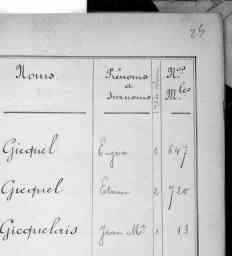 25
Noms. Prénoms et Surnoms Nos Mles
Gicquel 647
Gicquel 2 720
Gicquelais Jean Mie 1 13